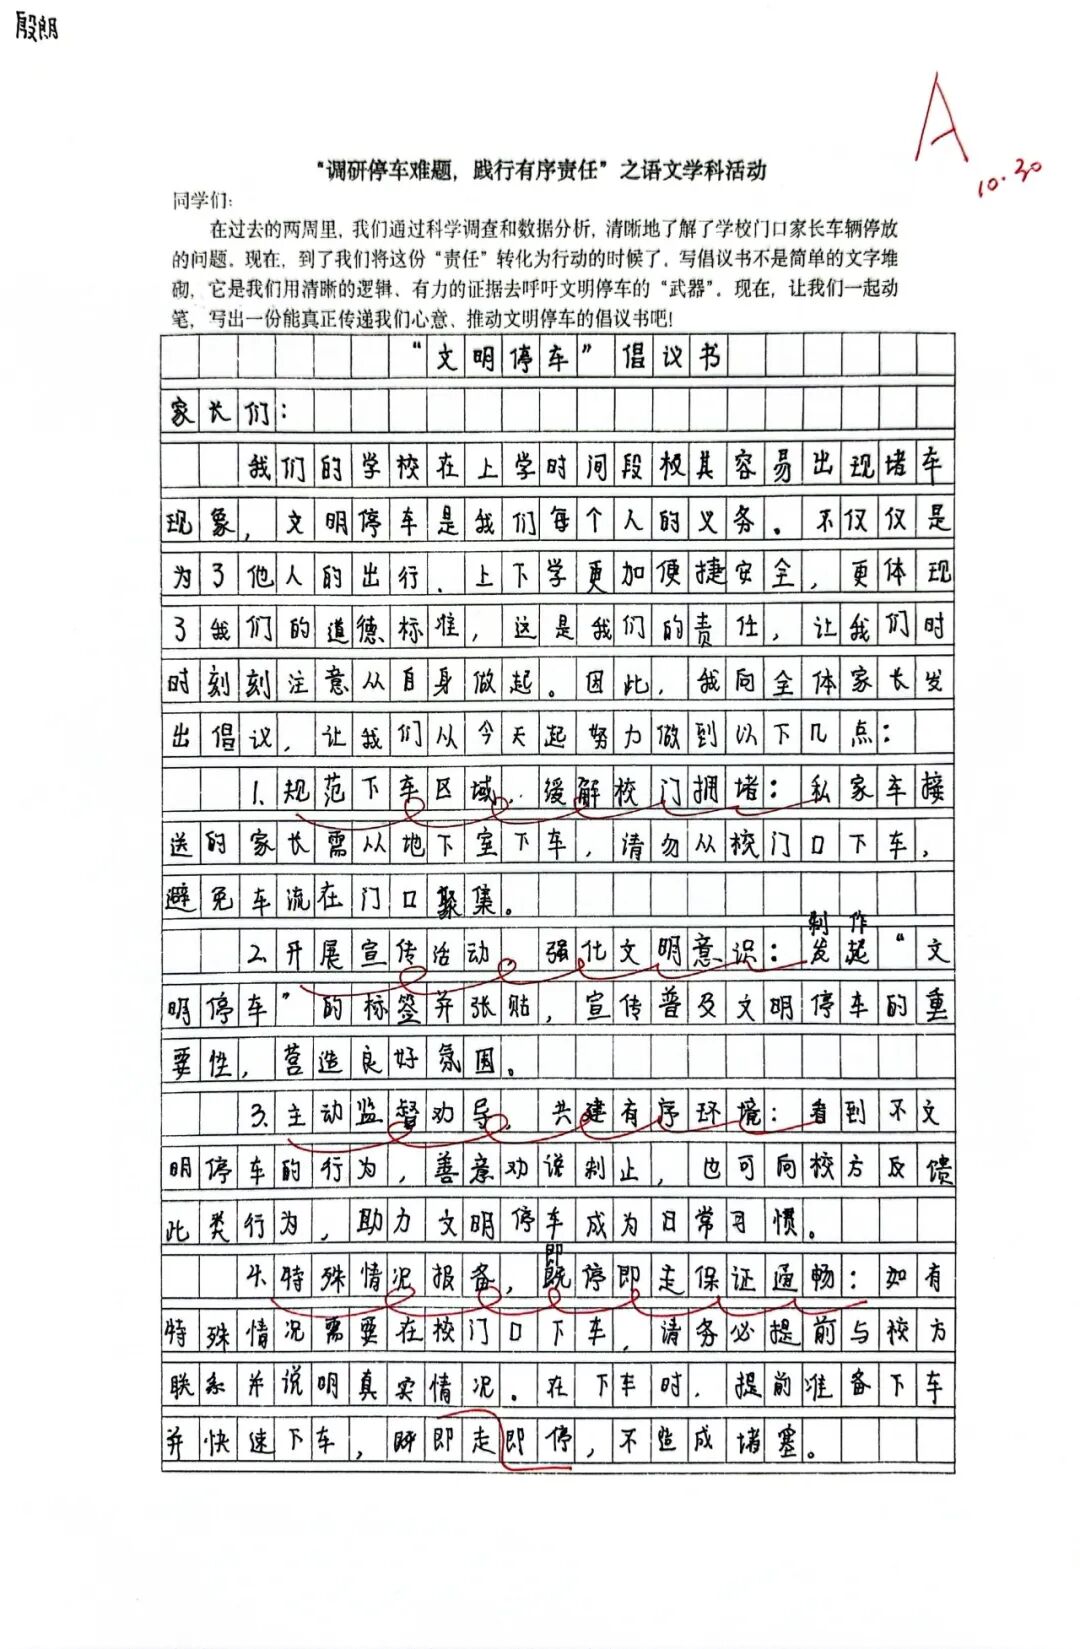 殷朗
A
10.30
“调研停车难题，践行有序责任”之语文学科活动
同学们：
在过去的两周里，我们通过科学调查和数据分析，清晰地了解了学校门口家长车辆停放
的问题。现在，到了我们将这份“责任”转化为行动的时候了。写倡议书不是简单的文字堆
砌，它是我们用清晰的逻辑、有力的证据去呼吁文明停车的“武器”。现在，让我们一起动
笔，写出一份能真正传递我们心意、推动文明停车的倡议书吧！
“文明停车”倡议书
家长们：
我们的学校在上学时间段极其容易出现堵车
现象，文明停车是我们每个人的义务。不仅仅是
为了他人的出行、上下学更加便捷安全，更体现
了我们的道德标准，这是我们的责任，让我们时
时刻刻注意从自身做起。因此，我向全体家长发
出倡议，让我们从今天起努力做到以下几点：
1.规范下车区域，缓解校门拥堵：私家车接
送的家长需从地下室下车，请勿从校门口下车，
避免车流在门口聚集。
制作
2.开展宣传活动，强化文明意识：发起“文
明停车”的标签并张贴，宣传普及文明停车的重
要性，营造良好氛围。
3.主动监督劝导，共建有序环境：看到不文
明停车的行为，善意劝说制止，也可向校方反馈
此类行为，助力文明停车成为日常习惯。
即
4.特殊情况报备，既停即走保证通畅：如有
特殊情况需要在校门口下车，请务必提前与校方
联系并说明真实情况。在下车时，提前准备下车
并快速下车，即走即停，不造成堵塞。